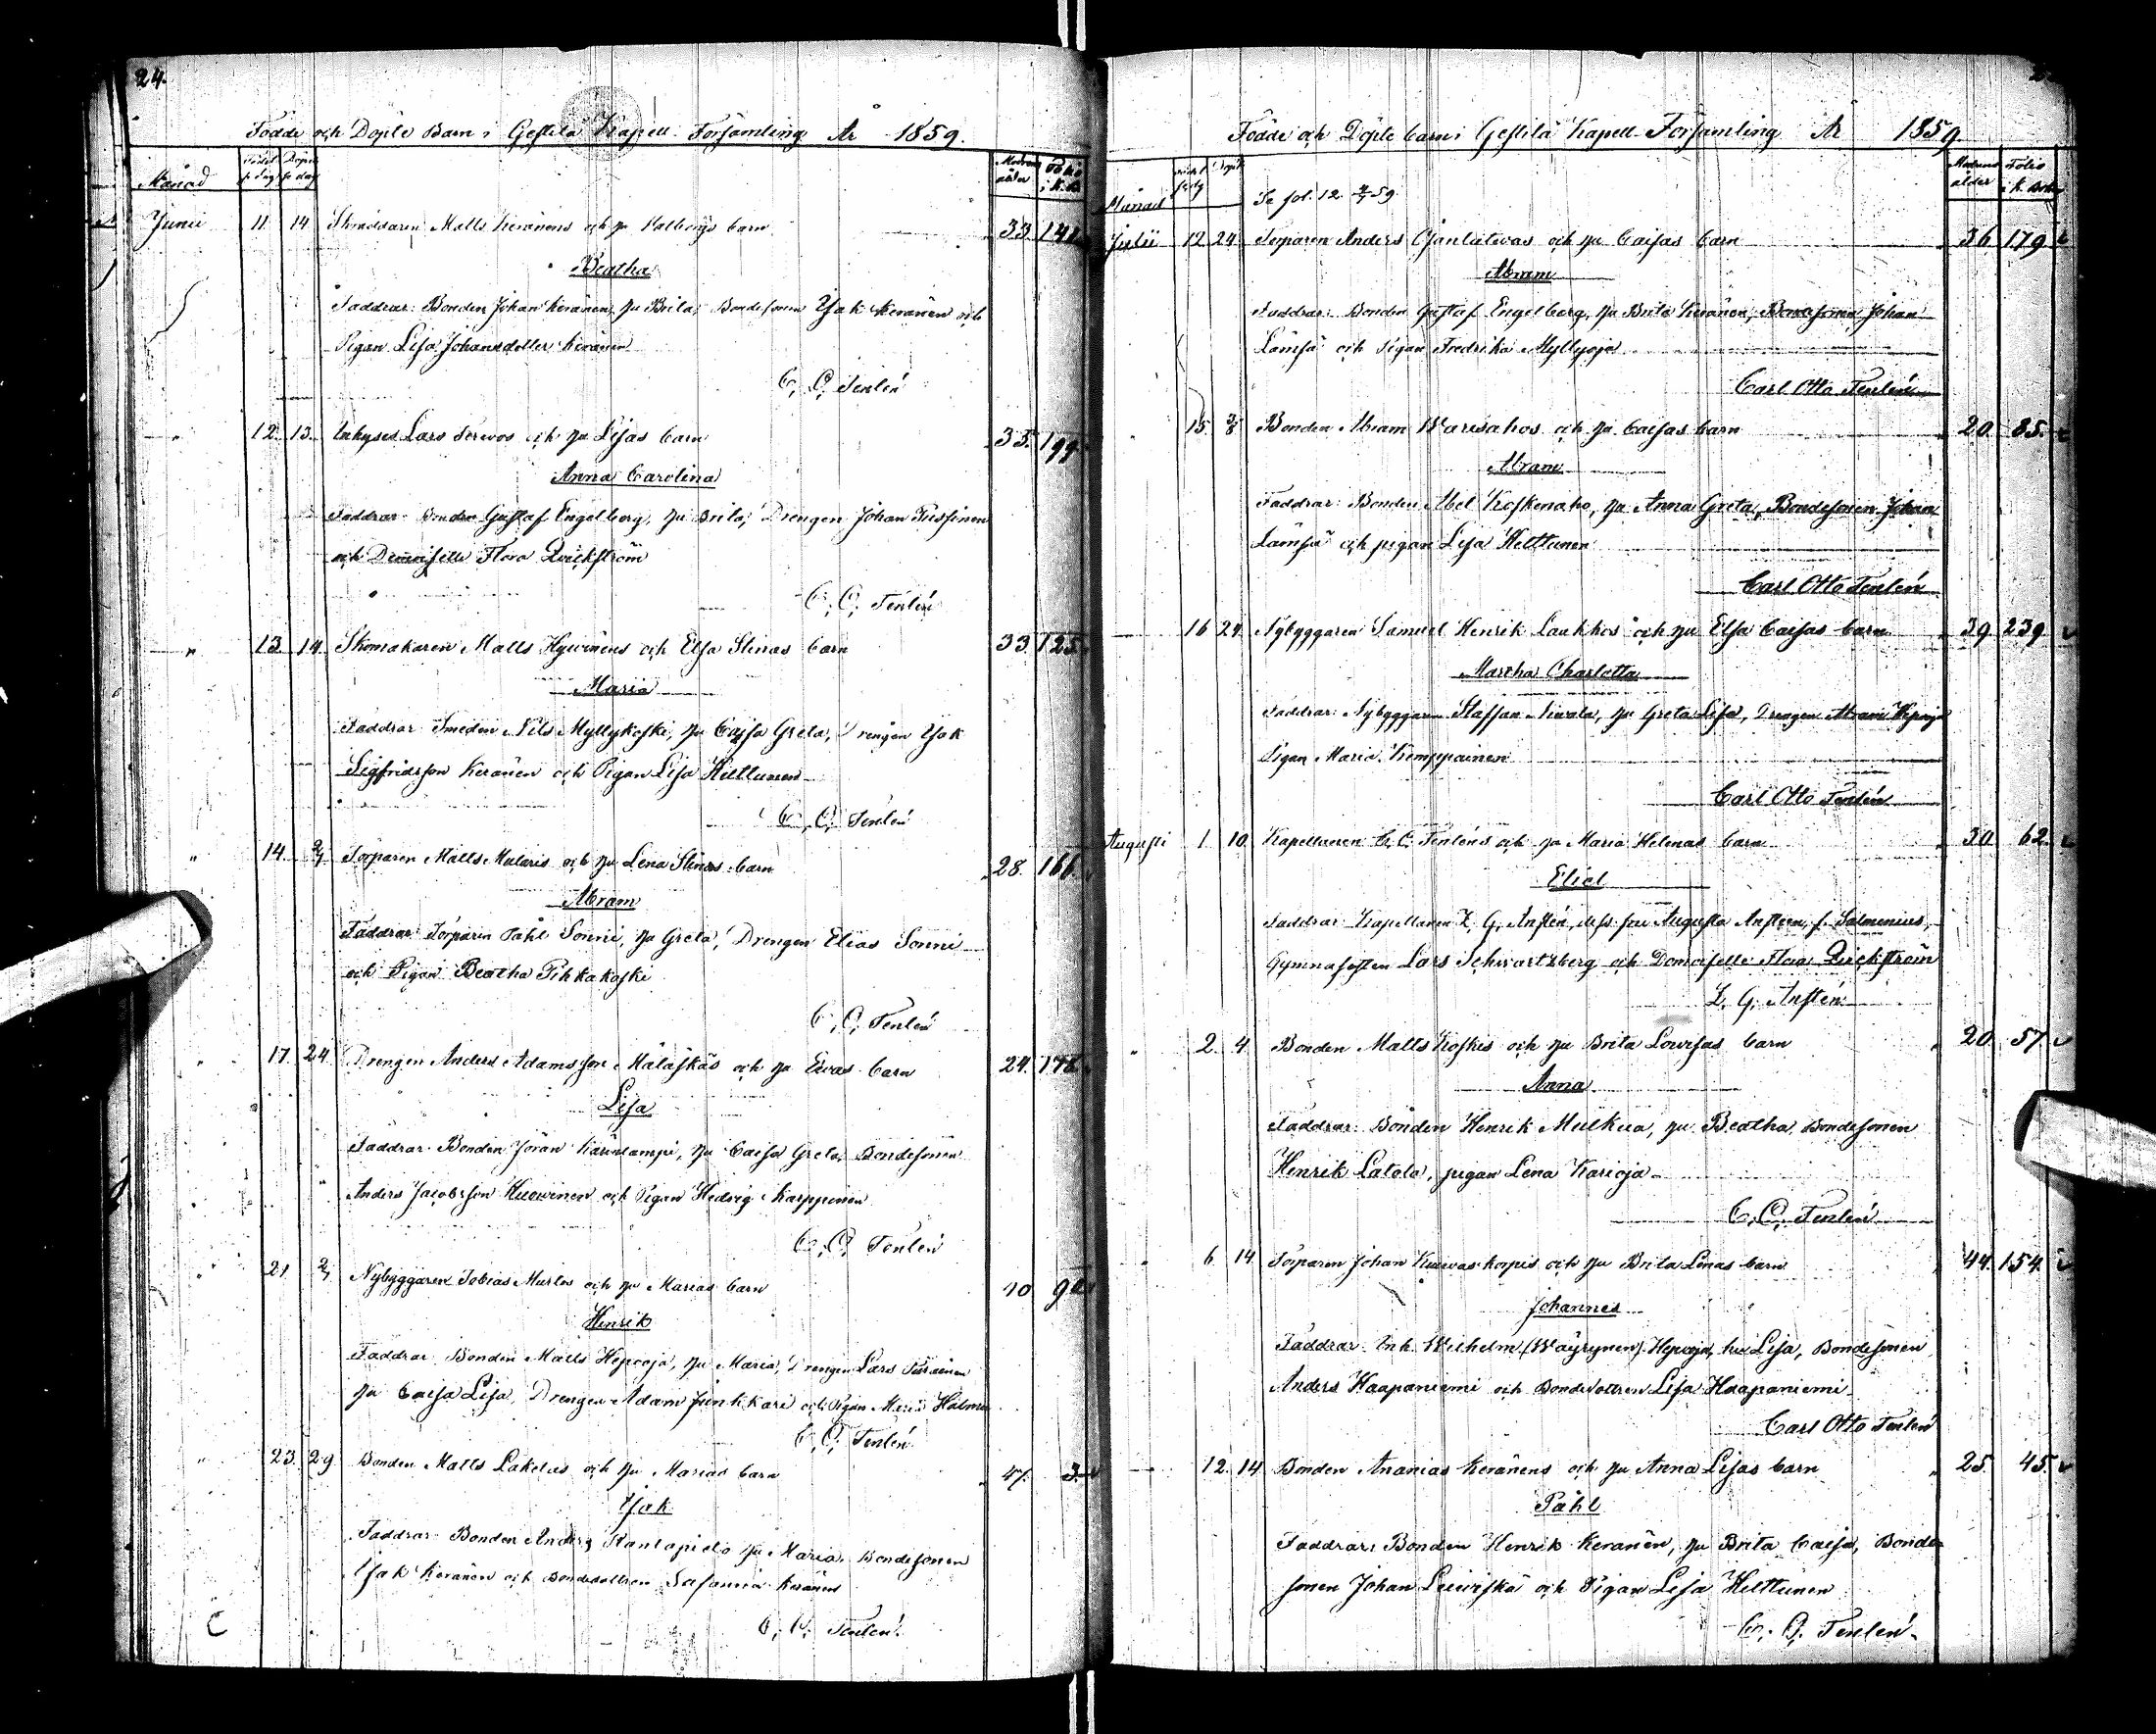 24.
Födde och Döpte Barn i Gestilä Kapell Församling År 1859.
Månad Född Döpt Modrens ålder Folio i K. B.
Junii 11. 14. Skräddaren Matts Keränens och hu Valborgs barn 33. 141
Beatha
Faddrar: Bonden Johan Keränen, hu Brita, Bondesonen Isak Keränen och
Pigan Lisa Johansdotter Keränen
C. O. Tenlén
" 12. 13. Inhyses Lars Servos och hu Lisas barn 33. 199.
Anna Carolina
Faddrar: Bonden Gustaf Engelberg, hu Brita, Drengen Johan
och Demoiselle Flora Qvickström
C. O. Tenlén
" 13. 14. Skomakaren Matts Hyvönens och Elsa Stinas barn 33. 125.
Maria
Faddrar: Smeden Nils Myllykoski, hu Cajsa Greta, Drengen Isak
Sigfridsson Keränen och Pigan Lisa Hilttunen
C. O. Tenlén
" 14. 2/7 Torparen Matts Mularis och hu Lena Stinas barn 28. 166.
Abram
Faddrar: Torparen Påhl Sonni, hu Greta, Drengen Elias Sonni
och Pigan Beatha Pihkakoski
C. O. Tenlén
" 17. 24. Drengen Anders Adamsson Mäläskäs och hu Evas barn 24. 178.
Lisa
Faddrar: Bonden Jöran Kärenlampi, hu Caisa Greta, Bondesonen
Anders Jacobsson Huovinen och Pigan Hedvig Karppinen
C. O. Tenlén
" 21. 2/7 Nybyggaren Tobias Murtos och hu Marias barn 40 90
Henrik
Faddrar: Bonden Matts Hepooja, hu Maria, Drengen Lars
hu Caisa Lisa, Drengen Adam Junkkari och Pigan Maria
C. O. Tenlén
" 23. 29 Bonden Matts Lakelas och hu Marias barn 47. 3.
Isak
Faddrar: Bonden Anders Rantapelo hu Maria, Bondesonen
Isak Keränen och Bondedottren Susanna Keränen
C. O. Tenlén.
Födde och Döpte barn i Gestilä Kapell Församling År 1859
Månad Född Döpt Modrens ålder Folio i K. Bok
Se fol. 12. 59
Julii 12 24 Torparen Anders Ojanlatvas och hu Caisas barn 36 179
Abram
Faddrar: Bonden Gustaf Engelberg, hu Brita Keränen, Bondesonen Johan
Lämsä och Pigan Fredrika Myllyoja
Carl Otto Tenlén
" 15. 3/8 Bonden Abram Warisahos och hu Caisas barn 20. 85.
Abram
Faddrar: Bonden Abel Koskenaho, hu Anna Greta, Bondesonen Johan
Lämsä och pigan Lisa Hilttunen
Carl Otto Tenlén
16 24 Nybyggaren Samuel Henrik Laukkos och hu Elsa Caisas barn 39 239
Martha Charlotta
Faddrar: Nybyggaren Staffan Nivala, hu Greta Lisa, Drengen Abram Hepooja
Pigan Maria Kemppainen
Carl Otto Tenlén
Augusti 1. 10. Kapellanen C. O. Tenléns och hu Maria Helenas barn 30 62.
Eliel
Faddrar: Kapellanen Z. G. Anstén, dess fru Augusta Anstén, f. Salmenius,
Gymnasisten Lars Schwartzberg och Demoiselle Flora Qvickström
Z. G. Anstén
" 2. 4. Bonden Matts Koskis och hu Brita Lovisas barn 20 57
Anna
Faddrar: Bonden Henrik Mulkua, hu Beatha, Bondesonen
Henrik Latola, pigan Lena Karioja
C. O. Tenlén
" 6. 14 Torparen Johan Kuivaskorpis och hu Brita Lenas barn 44. 154.
Johannes
Faddrar: Inh. Wilhelm (Wäyrynen) Hepooja, hu Lisa, Bondesonen
Anders Haapaniemi och Bondedottren Lisa Haapaniemi
Carl Otto Tenlén
12. 14 Bonden Ananias Keränens och hu Anna Lisas barn 25. 45.
Påhl
Faddrar: Bonden Henrik Keränen, hu Brita Caisa, Bonde-
sonen Johan och Pigan Lisa Hilttunen
C. O. Tenlén.